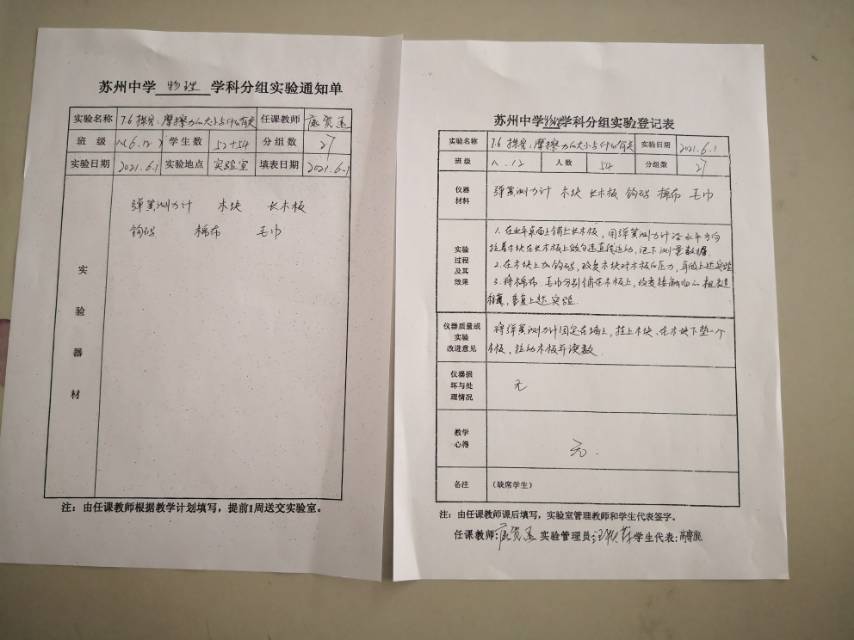 苏州中学 物理 学科分组实验通知单
实验名称 7.6 探究：摩擦力的大小与什么有关 任课教师
班 级 八(6.12) 学生数 52+54 分组数 27
实验日期 2021.6.1 实验地点 实验室 填表日期 2021.6.1
实验器材
弹簧测力计 木块 长木板
钩码 棉布 毛巾
注：由任课教师根据教学计划填写，提前1周送交实验室。
苏州中学物理学科分组实验登记表
实验名称 7.6 探究：摩擦力的大小与什么有关 实验日期 2021.6.1
班 级 八.12 人 数 54 分组数 27
仪器
材料
弹簧测力计 木块 长木板 钩码 棉布 毛巾
实验
过程
及其
效果
1.在水平桌面上铺上长木板，用弹簧测力计沿水平方向
拉着木块在长木板上做匀速直线运动，记下测量数据
2.在木块上加钩码，改变木块对木板的压力，重做上述实验
3.将棉布、毛巾分别铺在木板上，改变接触面的粗糙
程度，重复上述实验
仪器质量或
实验
改进意见
将弹簧测力计固定在墙上，挂上木块、在木块下垫一个
木板，拉动木板并读数
仪器损
坏与处
理情况
无
教学
心得
无
备注 (缺席学生)
注：由任课教师课后填写，实验室管理教师和学生代表签字。
任课教师: 实验管理员: 学生代表: